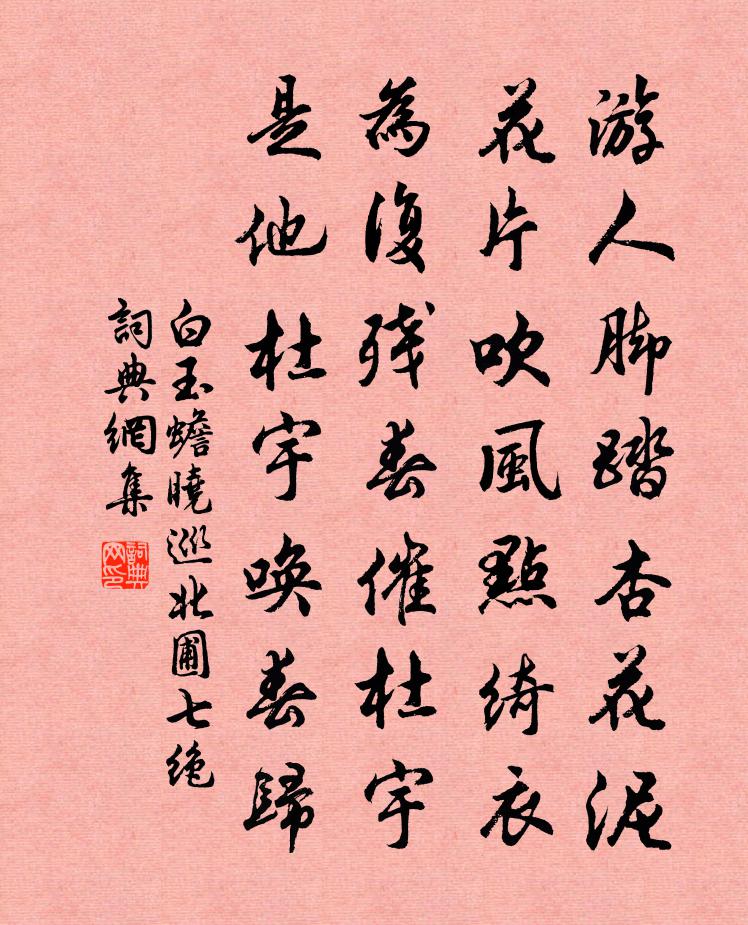 游人脚踏杏花泥
花片吹風點綺衣
為復残春催杜宇
是他杜宇唤春歸
白玉蟾曉巡北圃七绝
詞典網集
詞典网印